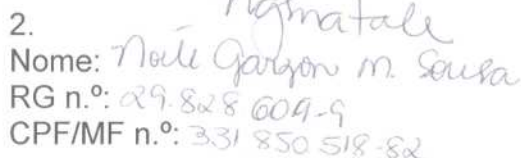 2.
Nome: Garzon M. Sousa
RG n.º: 29.828 604-9
CPF/MF n.º: 331 850 518-82